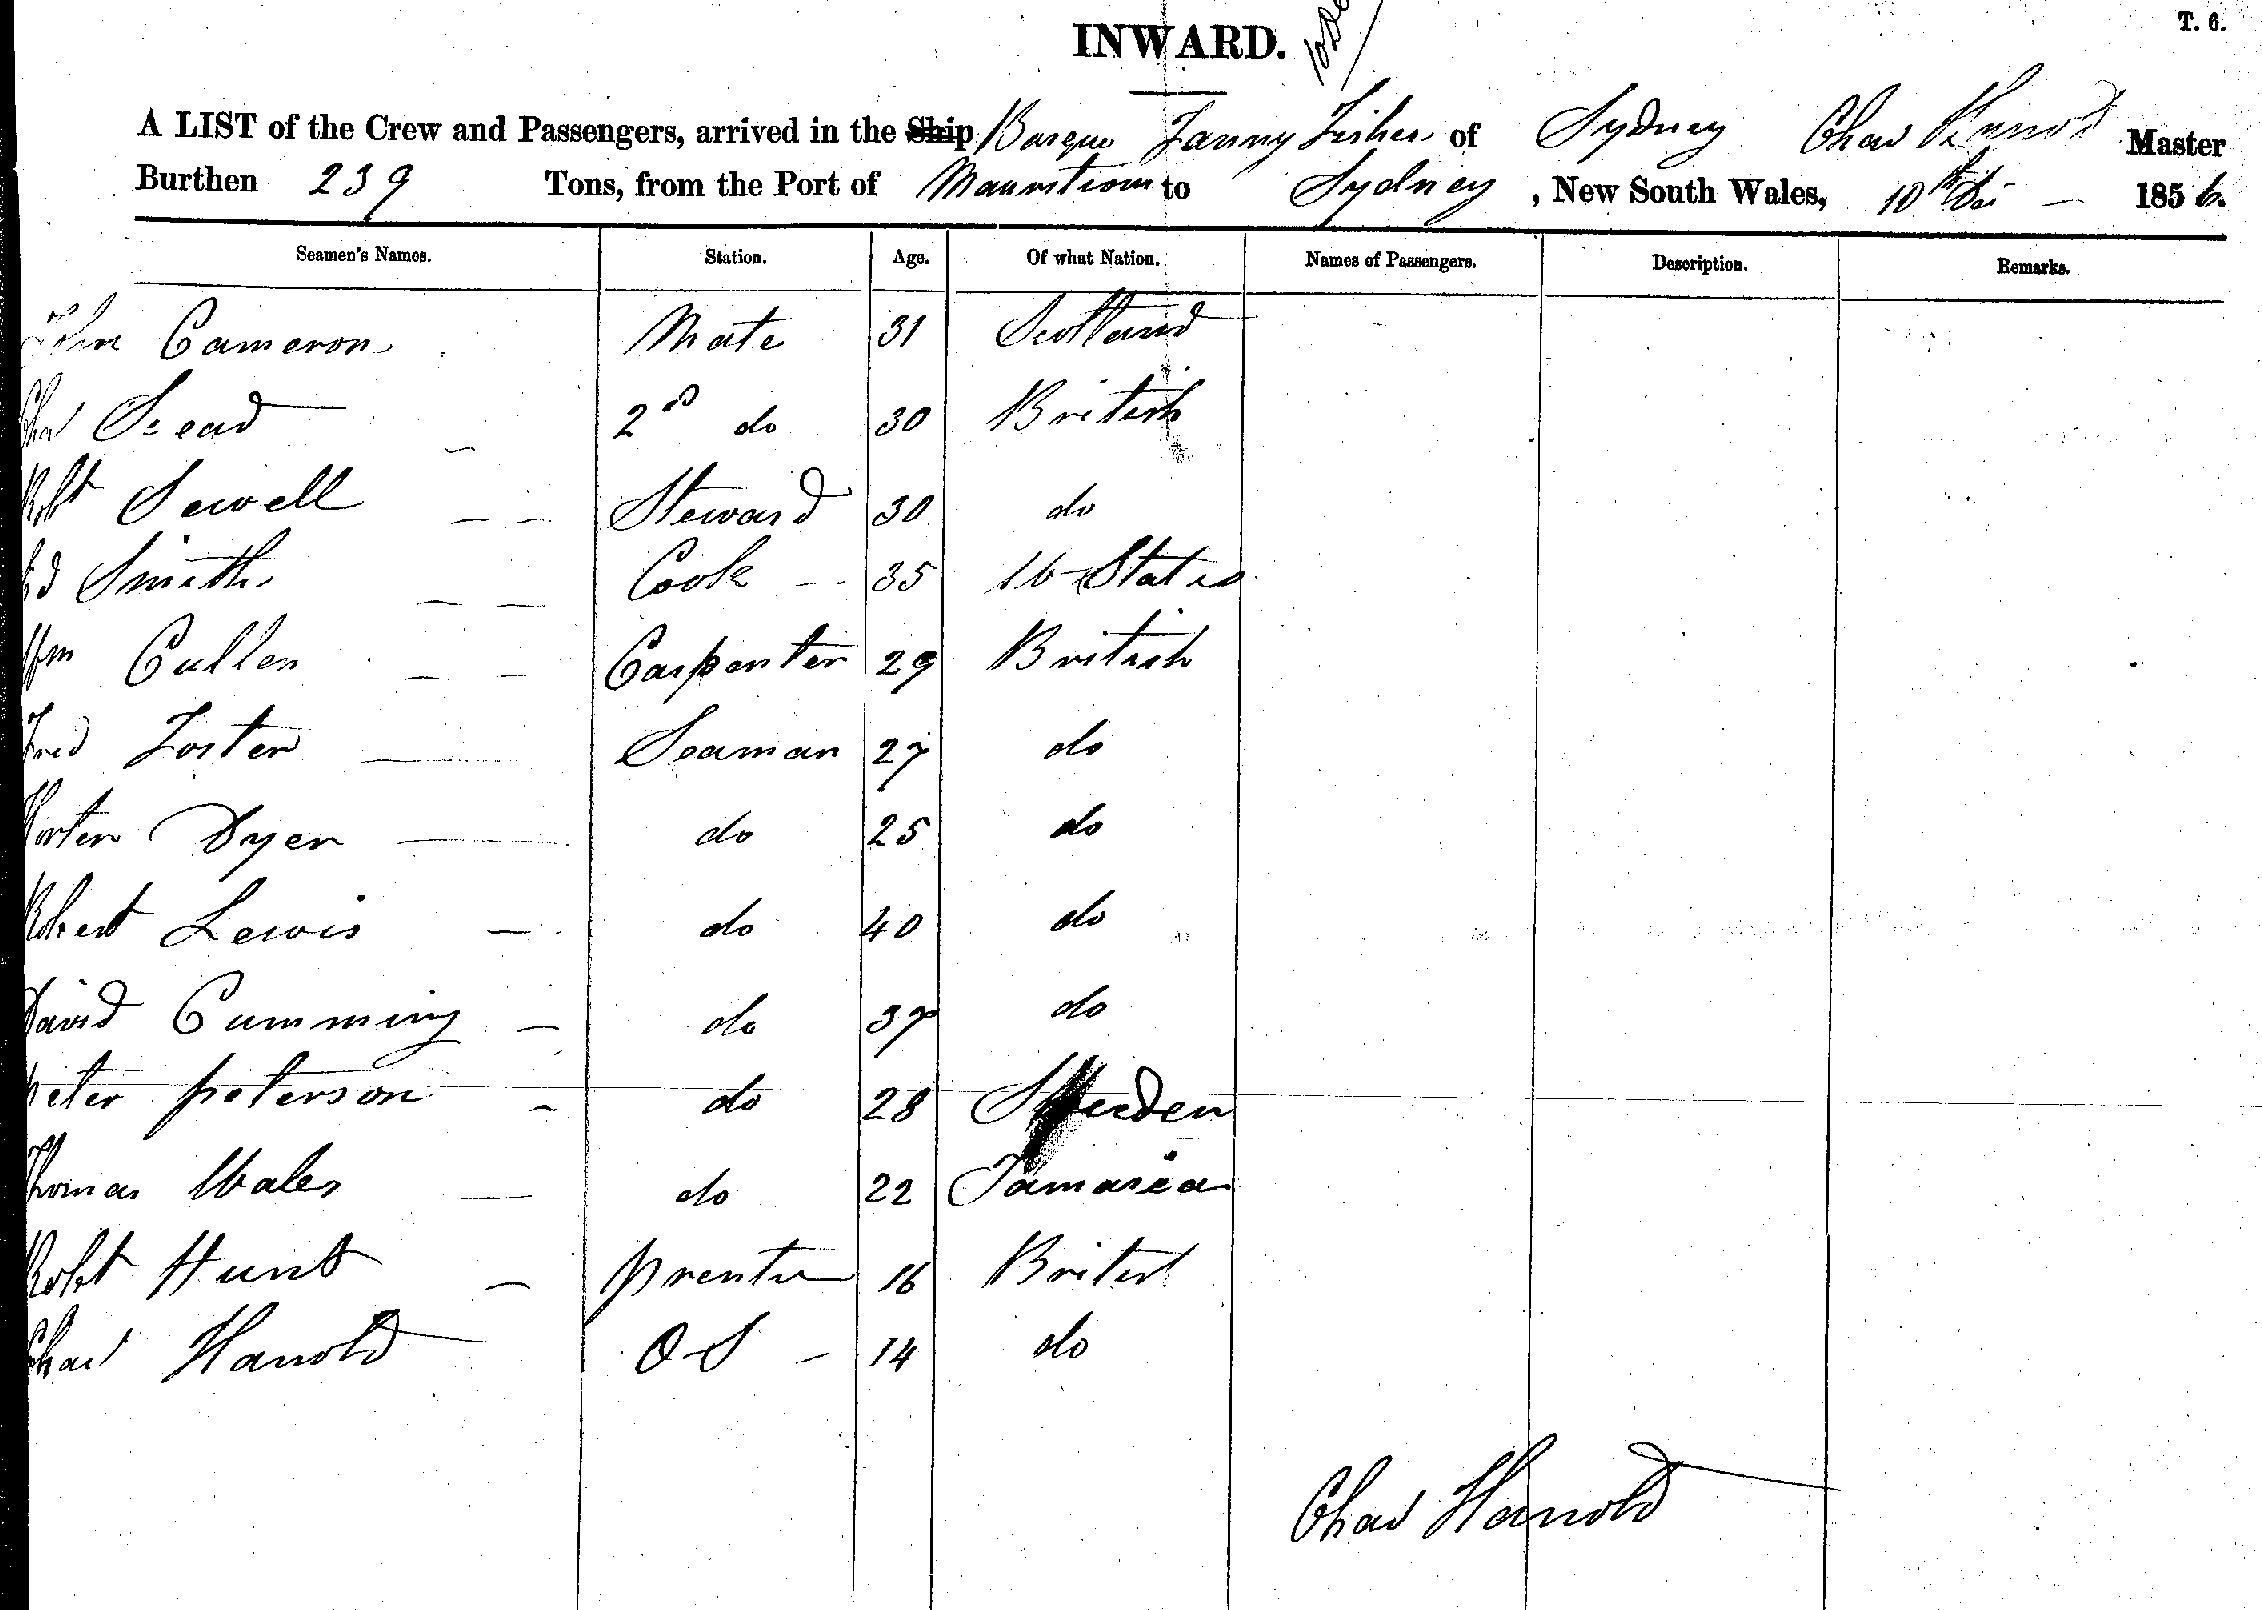 T. 6.
INWARD.
A LIST of the Crew and Passengers, arrived in the Ship Barque Fanny Fisher of Sydney Chas Harrold Master
Burthen 239 Tons, from the Port of Mauritius to Sydney, New South Wales, 10th Dec 1856
Seamen's Names. Station. Age. Of what Nation. Names of Passengers. Description. Remarks.
John Cameron Mate 31 Scotland
Chas 2d do 30 British
Robt Sewell Steward 30 do
Ed Smith Cook 35 U States
Wm Cullen Carpenter 29 British
Fred Foster Seaman 27 do
Dyer do 25 do
Robert Lewis do 40 do
David Cumming do 37 do
Peter Peterson do 28 Sweden
Thomas Wales do 22 Jamaica
Robt Hunt Prentice 16 British
Chas Harrold O S 14 do
Chas Harrold